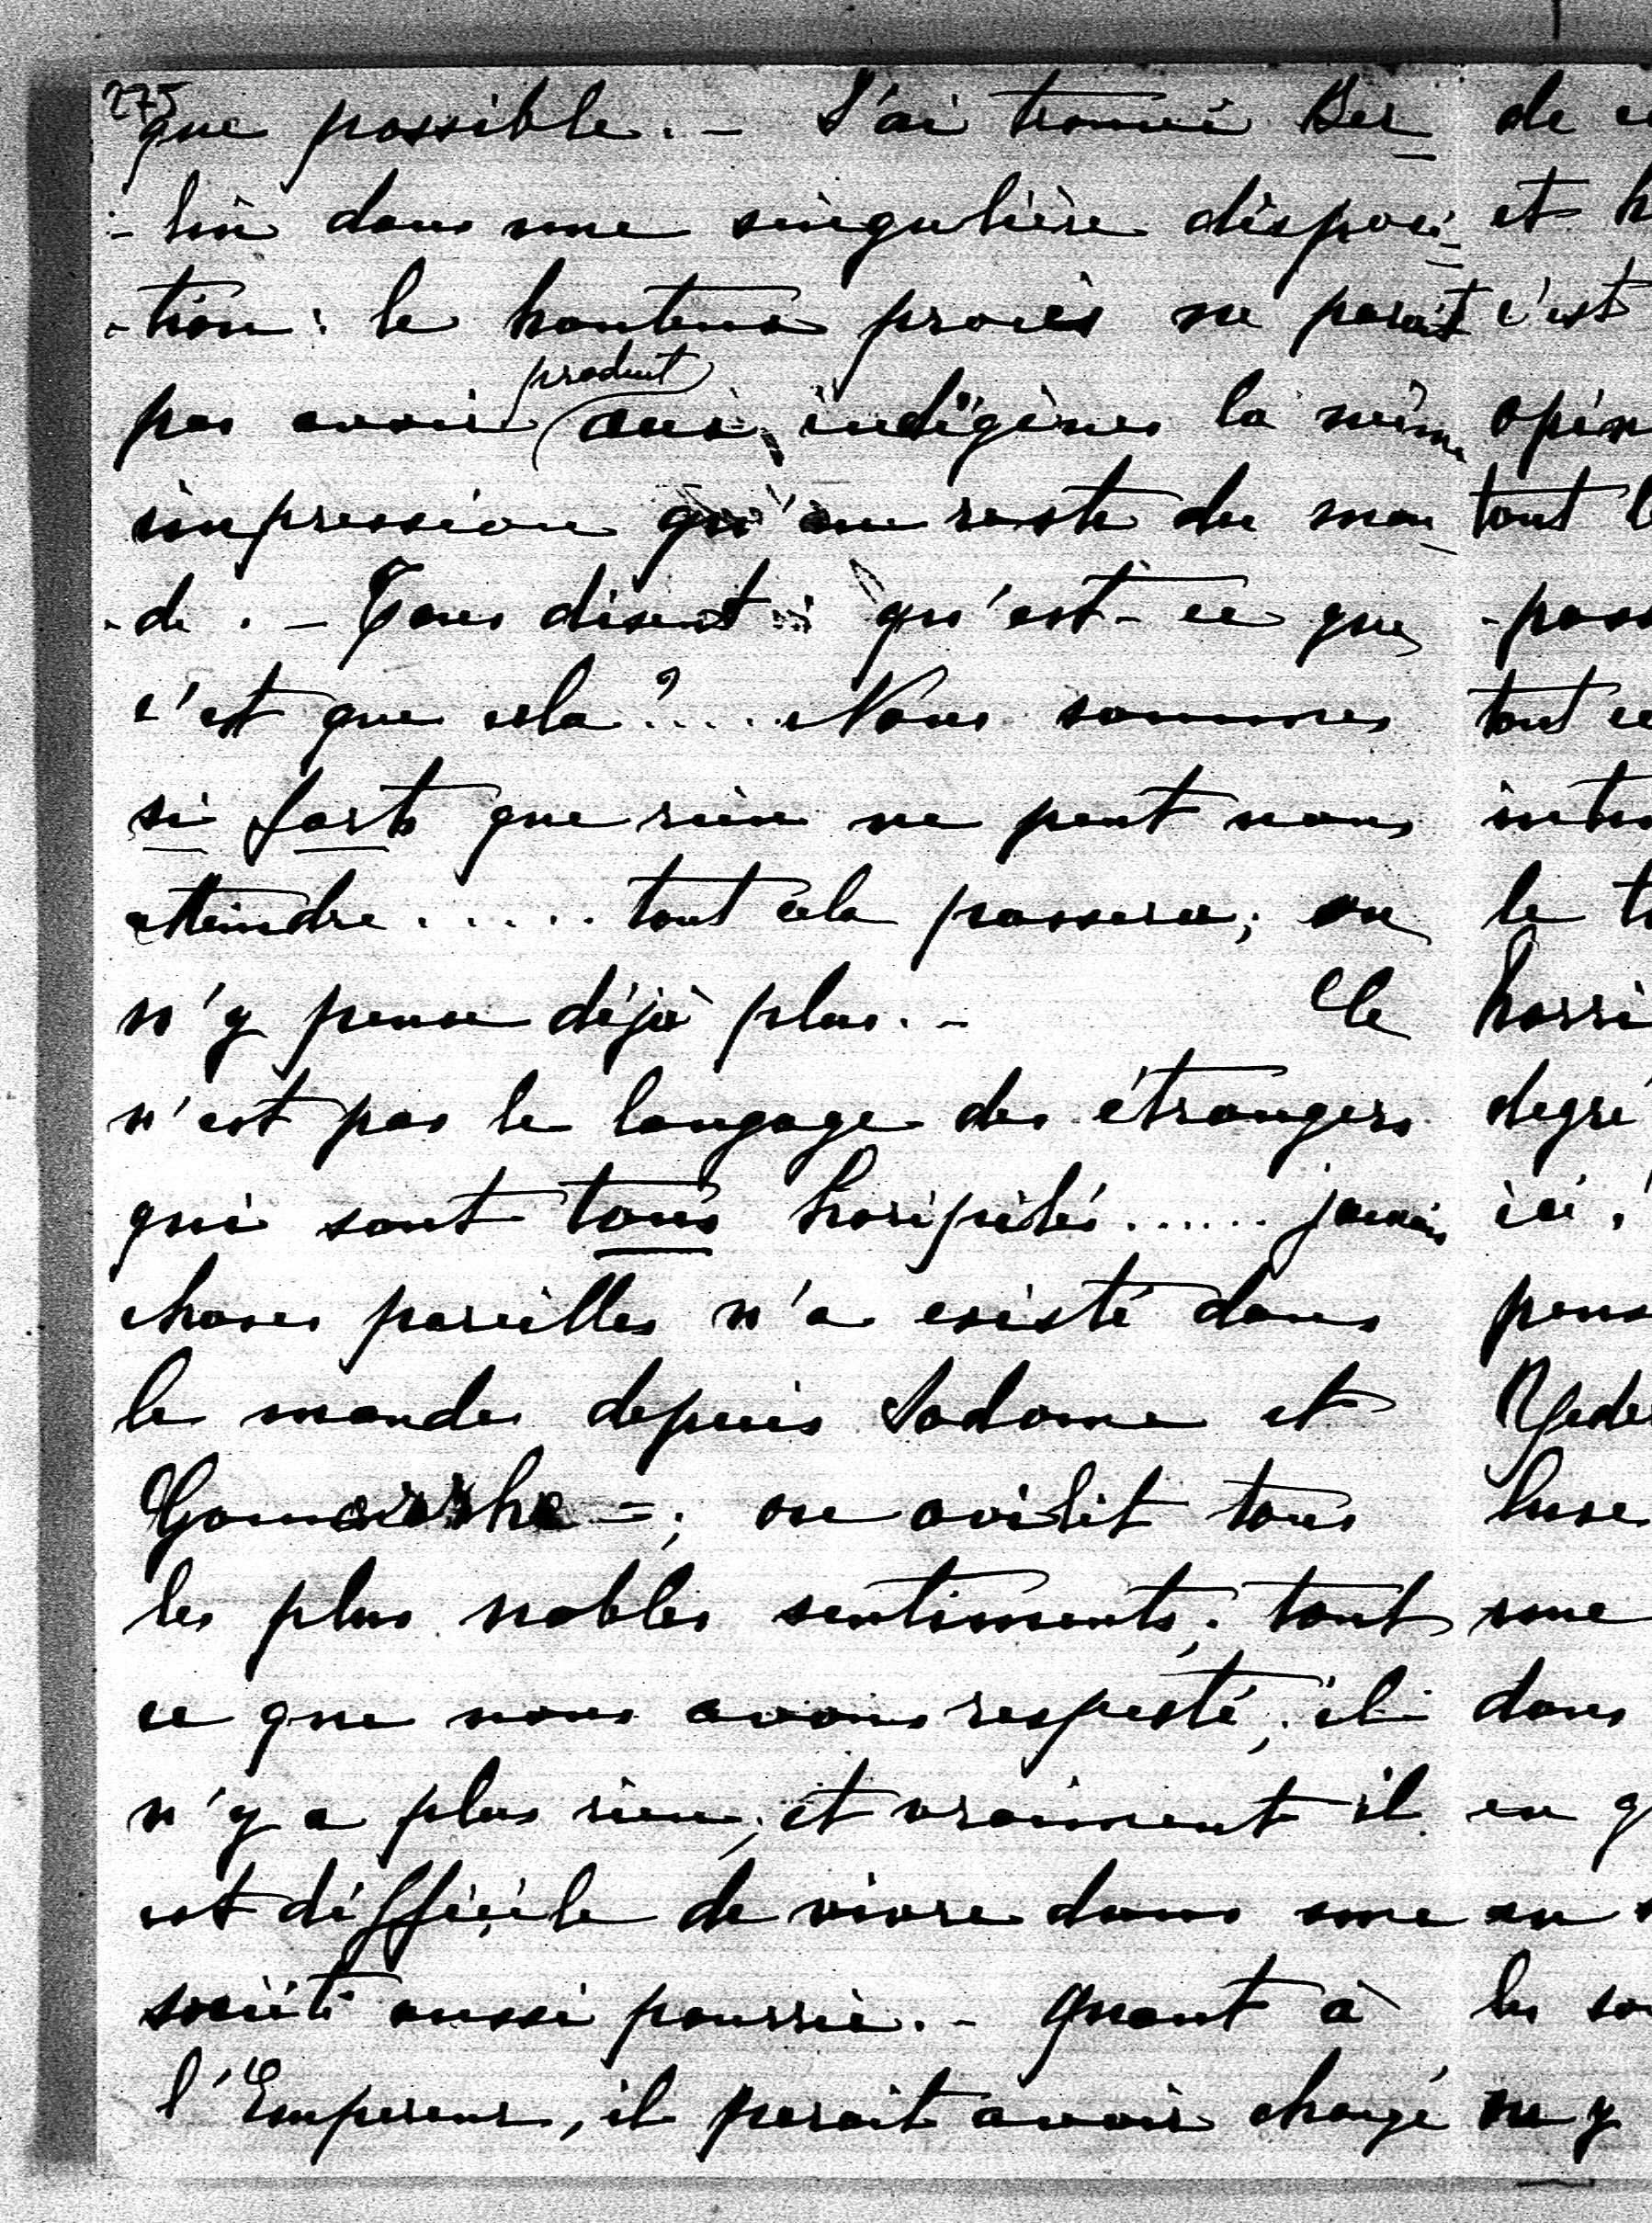 275
que possible. – J'ai trouvé Ber-
-lin dans une singulière disposi-
-tion : le honteux procès ne parait
pas avoir produit aux indigènes la même
impression qu'au reste du mon-
-de. – Tous disent : qu'est-ce que
c'est que cela ?.... Nous sommes
si forts que rien ne peut nous
atteindre ..... tout cela passera ; on
n'y pense déjà plus. – Ce
n'est pas le langage des étrangers
qui sont tous horipilés ...... jamais
choses pareilles n'a existé dans
le monde depuis Sodome et
Gomorrhe – ; on avilit tous
les plus nobles sentiments ; tout
ce que nous avons respecté ; il
n'y a plus rien ; et vraiment il
est difficile de vivre dans une
société aussi pourrie. – Quant à
l'Empereur, il parait avoir changé
de
et
c'est
tout
tout
le
degré
ici
dans
en
en
les
ne y